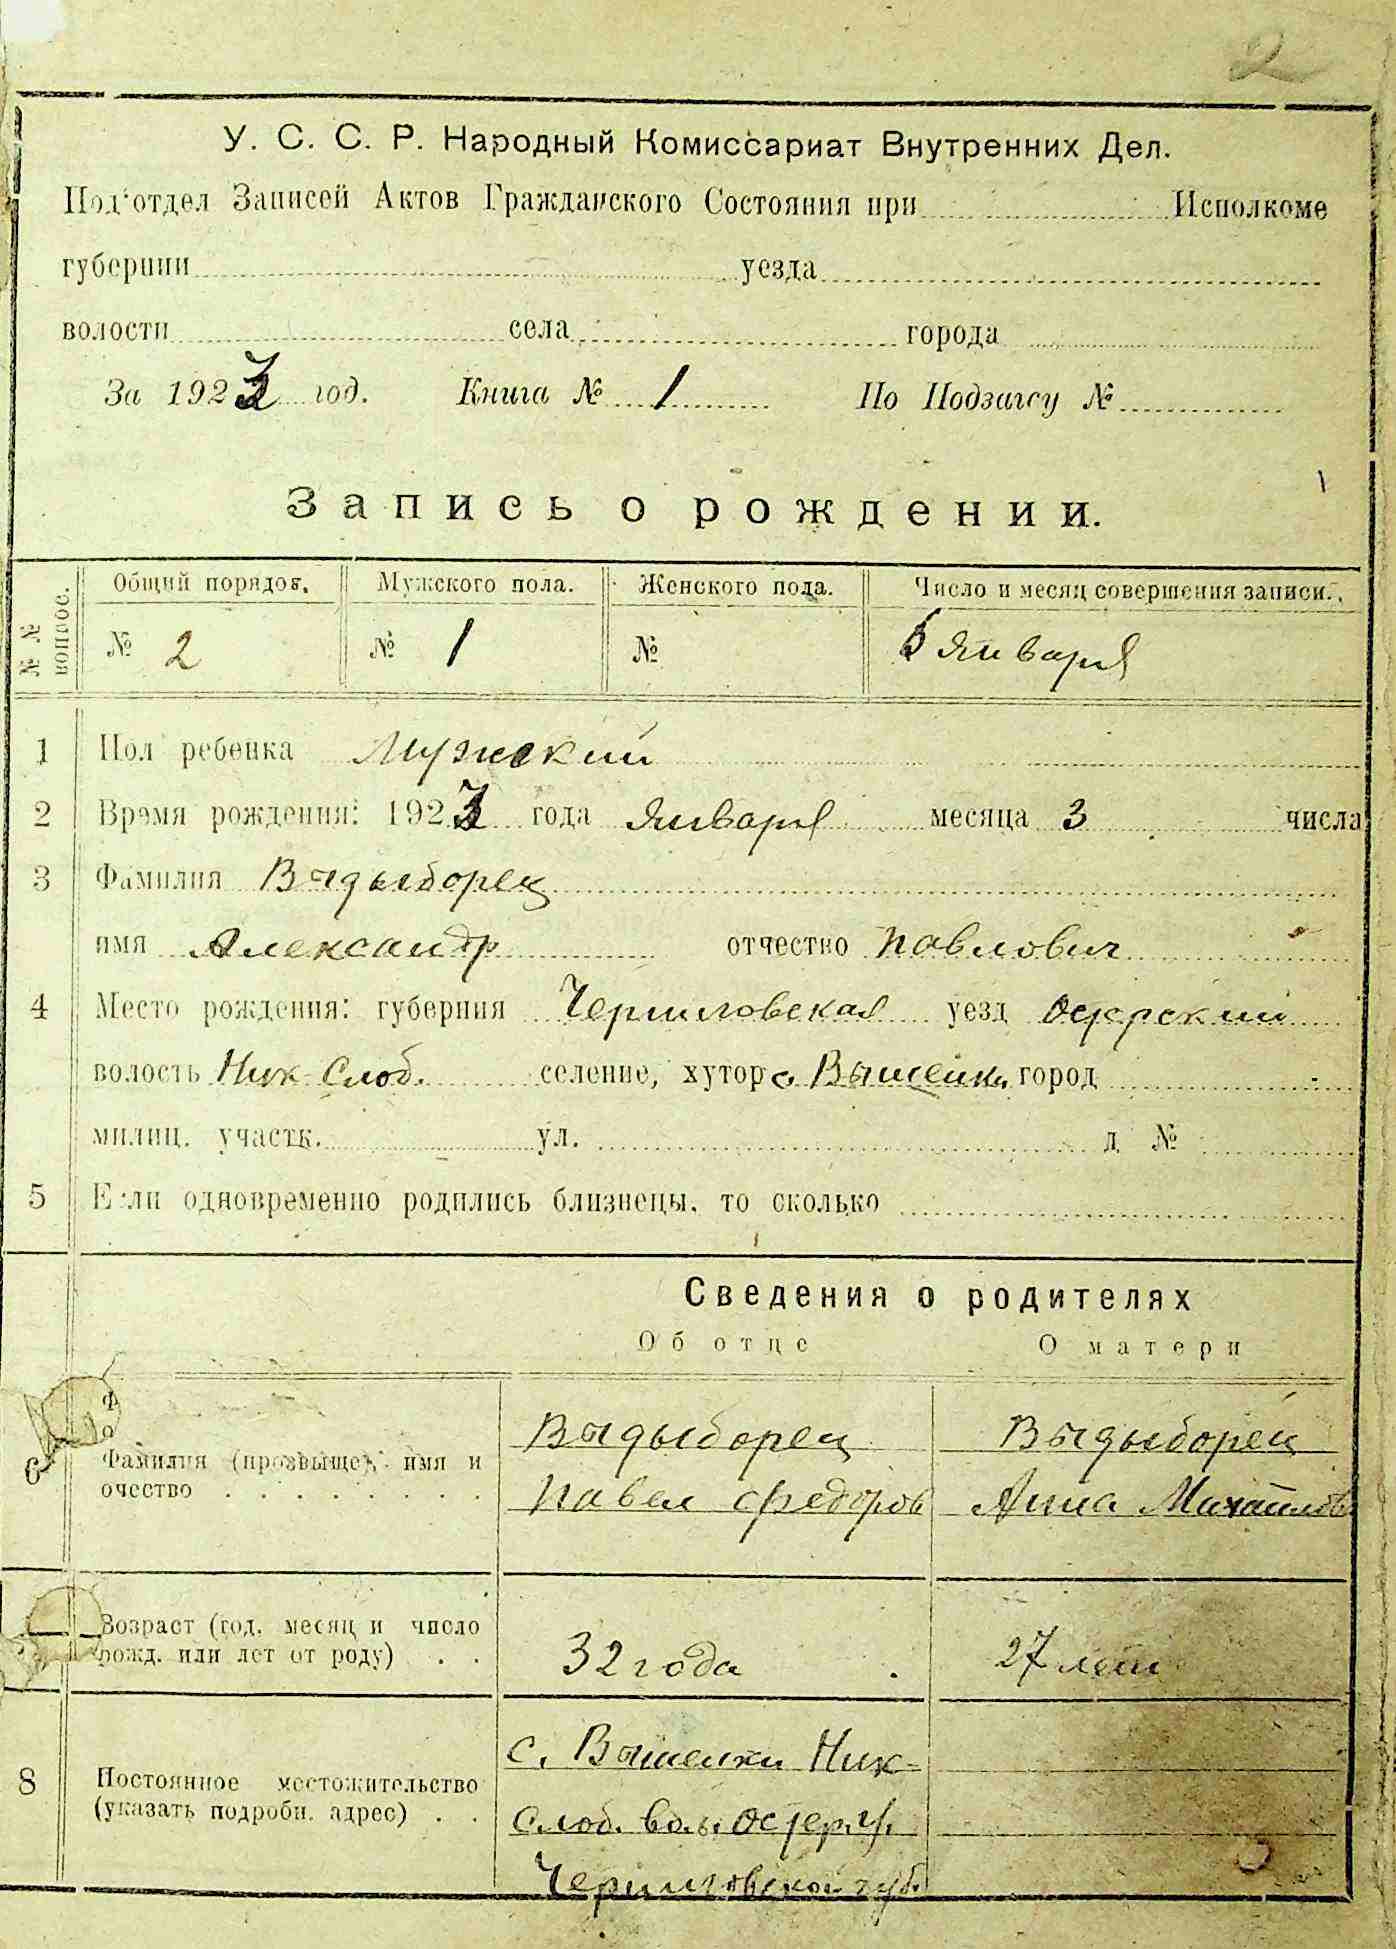 2
У. С. С. Р. Народный Комиссариат Внутренних Дел.
Под'отдел Записей Актов Гражданского Состояния при Исполкоме
губернии уезда
волости села города
За 1923 год. Книга № 1 По Подзагсу №
Запись о рождении.
№ № вопрос. Общий порядов. Мужского пола. Женского пола. Число и месяц совершения записи.
№ 2 № 1 № 5 Января
1 Пол ребенка Мужский
2 Время рождения: 1923 года Января месяца 3 числа
3 Фамилия Выдыборец
имя Александр отчество Павлович
4 Место рождения: губерния Черниговская уезд Остерский
волость Ник Слоб. селение, хутор с. Вышеньки город
милиц. участк. ул. д №
5 Если одновременно родились близнецы, то сколько
Сведения о родителях
Об отце О матери
6 Фамилия (прозвыще), имя и очество Выдыборец Павел Федоров Выдыборец Анна Михайлов
Возраст (год, месяц и число рожд. или лет от роду) 32 года 27 лет
8 Постоянное местожительство (указать подробн. адрес) с. Вышенки Ник-
Слоб. вол. Остер. у.
Черниговской губ.